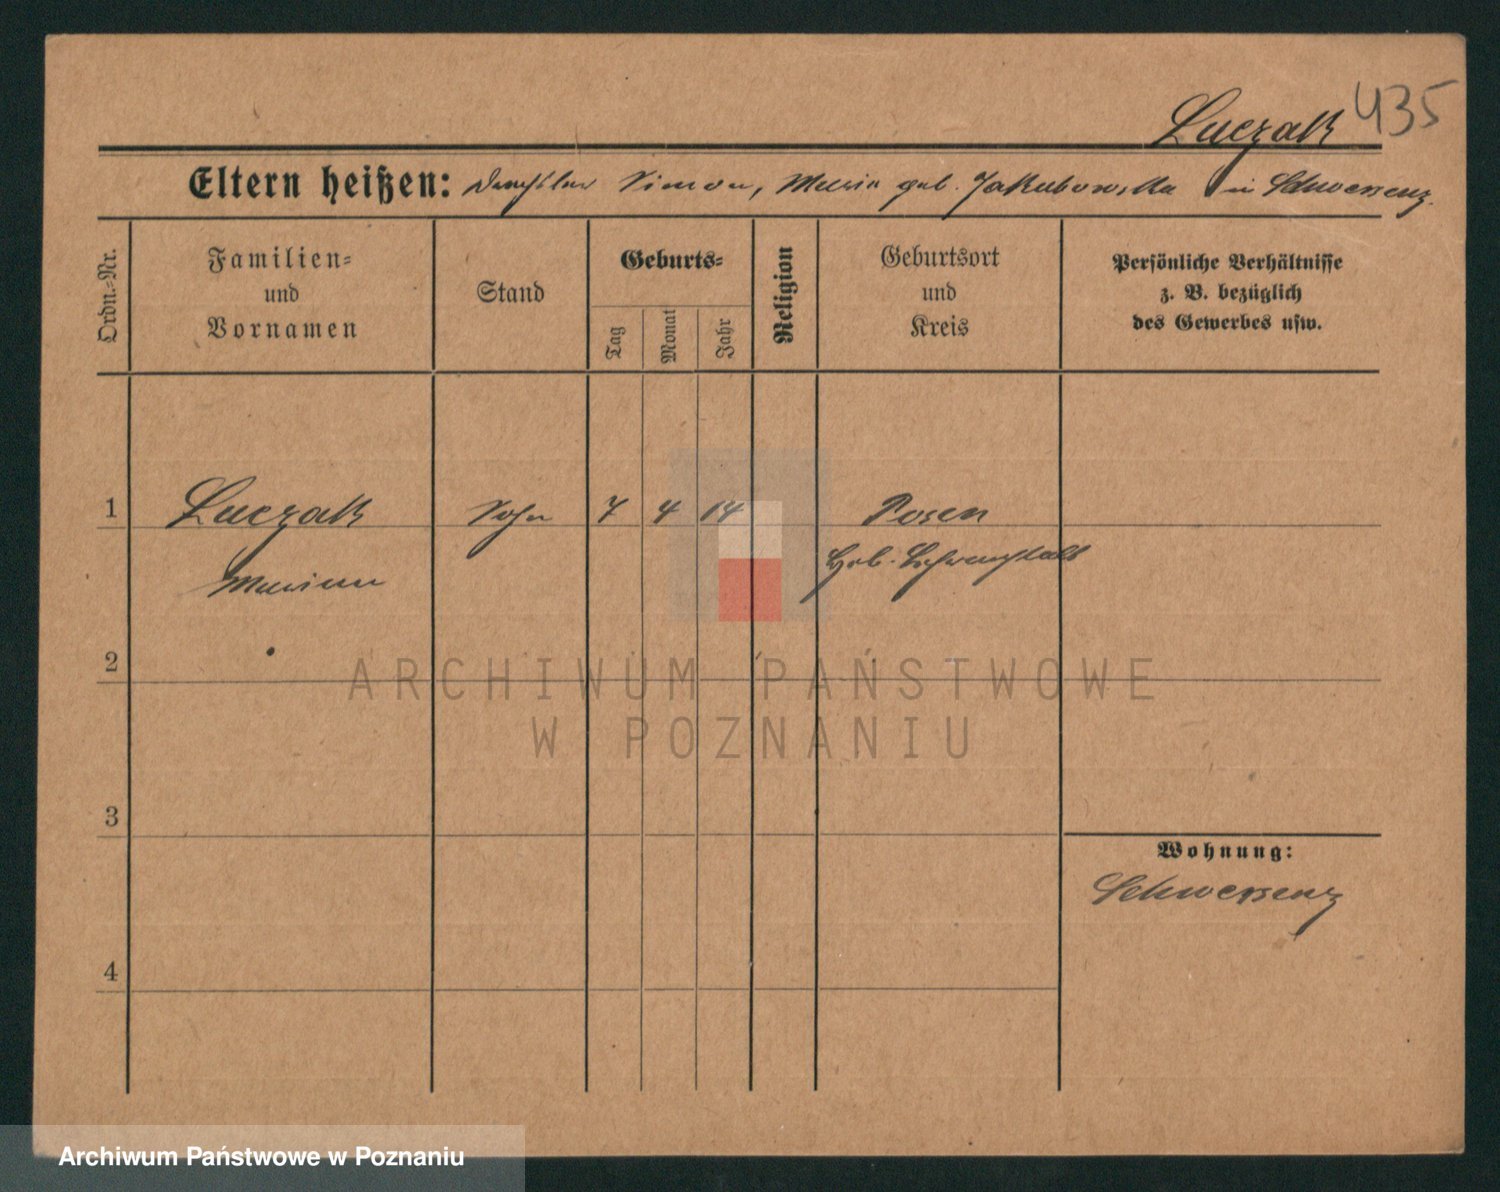 Luczak 435
Eltern heißen: Simon, Maria geb. Jakubowska in Schwersenz.
Ordn.-Nr.
Familien-
und
Vornamen
Stand
Geburts-
Tag
Monat
Jahr
Religion
Geburtsort
und
Kreis
Persönliche Verhältnisse
z. B. bezüglich
des Gewerbes usw.
1 Luczak Sohn 7 4 14 Posen
Marian Heb.
2
ARCHIWUM PAŃSTWOWE
W POZNANIU
3
Wohnung:
Schwersenz
4
Archiwum Państwowe w Poznaniu